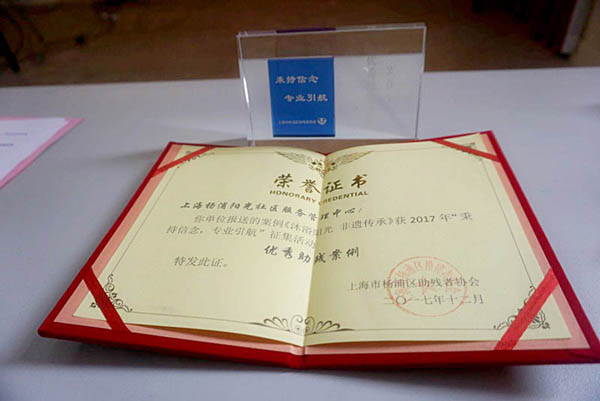 秉持信念
专业引航
荣誉证书
HONORARY CREDENTIAL
上海杨浦阳光社区服务管理中心：
你单位报送的案例《沐浴阳光 非遗传承》获2017年“秉
持信念，专业引航”征集活动
优秀助残案例
特发此证。
上海市杨浦区助残者协会
二〇一七年十二月